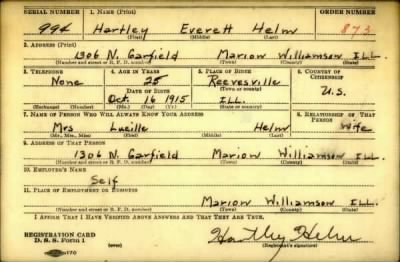 SERIAL NUMBER 1. NAME (Print) ORDER NUMBER
994 Hartley Everett Helm 873
2. ADDRESS (Print)
1306 N. Garfield Marion Williamson ILL.
(Number and street or R. F. D. number) (Town) (County) (State)
3. TELEPHONE 4. AGE IN YEARS 5. PLACE OF BIRTH 6. COUNTRY OF CITIZENSHIP
None 25 Reevesville U.S.
DATE OF BIRTH (Town or county)
Oct. 16 1915 ILL.
(Exchange) (Number) (Mo.) (Day) (Yr.) (State or country)
7. NAME OF PERSON WHO WILL ALWAYS KNOW YOUR ADDRESS 8. RELATIONSHIP OF THAT PERSON
Mrs Lucille Helm Wife
(Mr., Mrs., Miss) (First) (Middle) (Last)
9. ADDRESS OF THAT PERSON
1306 N. Garfield Marion Williamson ILL.
(Number and street or R. F. D. number) (Town) (County) (State)
10. EMPLOYER'S NAME
Self
11. PLACE OF EMPLOYMENT OR BUSINESS
Marion Williamson ILL.
(Number and street or R. F. D. number) (Town) (County) (State)
I AFFIRM THAT I HAVE VERIFIED ABOVE ANSWERS AND THAT THEY ARE TRUE.
REGISTRATION CARD
D. S. S. Form 1 (over) Hartley Helm
(Registrant's signature)